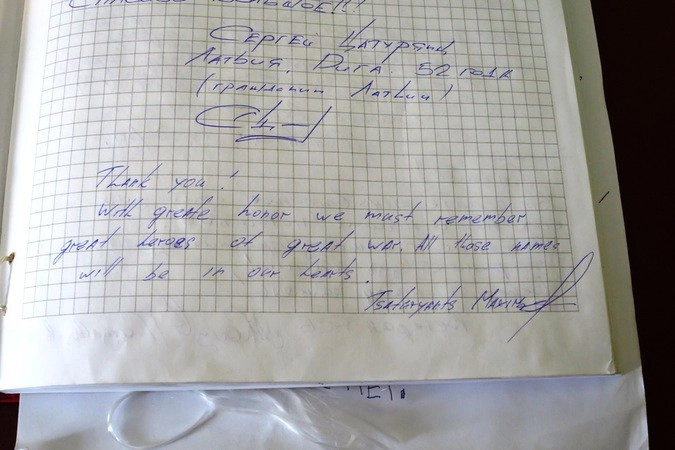 СПАСИБО БОЛЬШОЕ!!!
СЕРГЕЙ ЦАТУРЯНЦ
ЛАТВИЯ, РИГА. 52 ГОДА
(ГРАЖДАНИН ЛАТВИИ)
Thank you!
With greate honor we must remember
great heroes of great war. All those names
will be in our hearts.
Tsaturyants Maxim